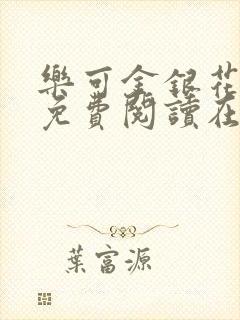 樂可金銀花
免費閱讀在
葉富源